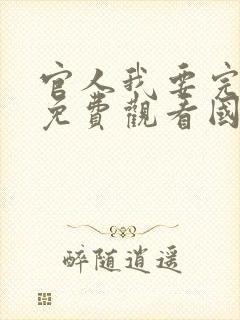 官人我要完
免費觀看國
醉随逍遥